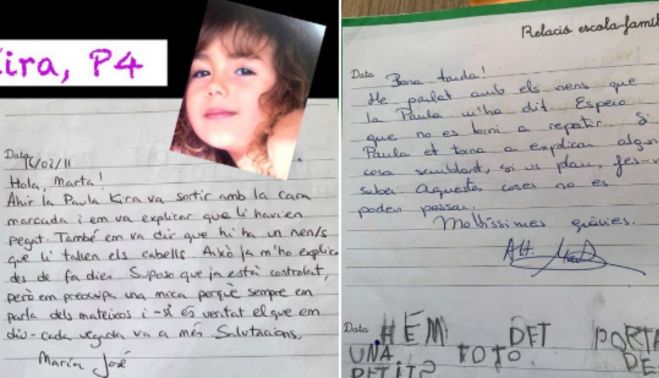 Kira, P4
Data 16/02/11
Hola, Marta!
Ahir la Paula Kira va sortir amb la cara
marcada i em va explicar que li havien
pegat. També em va dir que hi ha un nen/s
que li tallen els cabells. Això ja m'ho explic
des de fa dies. Suposo que ja està controlat,
però em preocupa una mica perquè sempre em
parla dels mateixos i -si és veritat el que em
diu- cada vegada va a més. Salutacions,
María José
Relació escola-famíl
Data Bona tarda!
He parlat amb els nens que
la Paula m'ha dit. Espero
que no es torni a repetir. Si
Paula et torna a explicar algun
cosa semblant, si us plau, fes-
saber. Aquestes coses no es
poden passar.
Moltíssimes gràcies.
Att.
Data HEM DET PORTA
UNA FOTO DE
PETITS